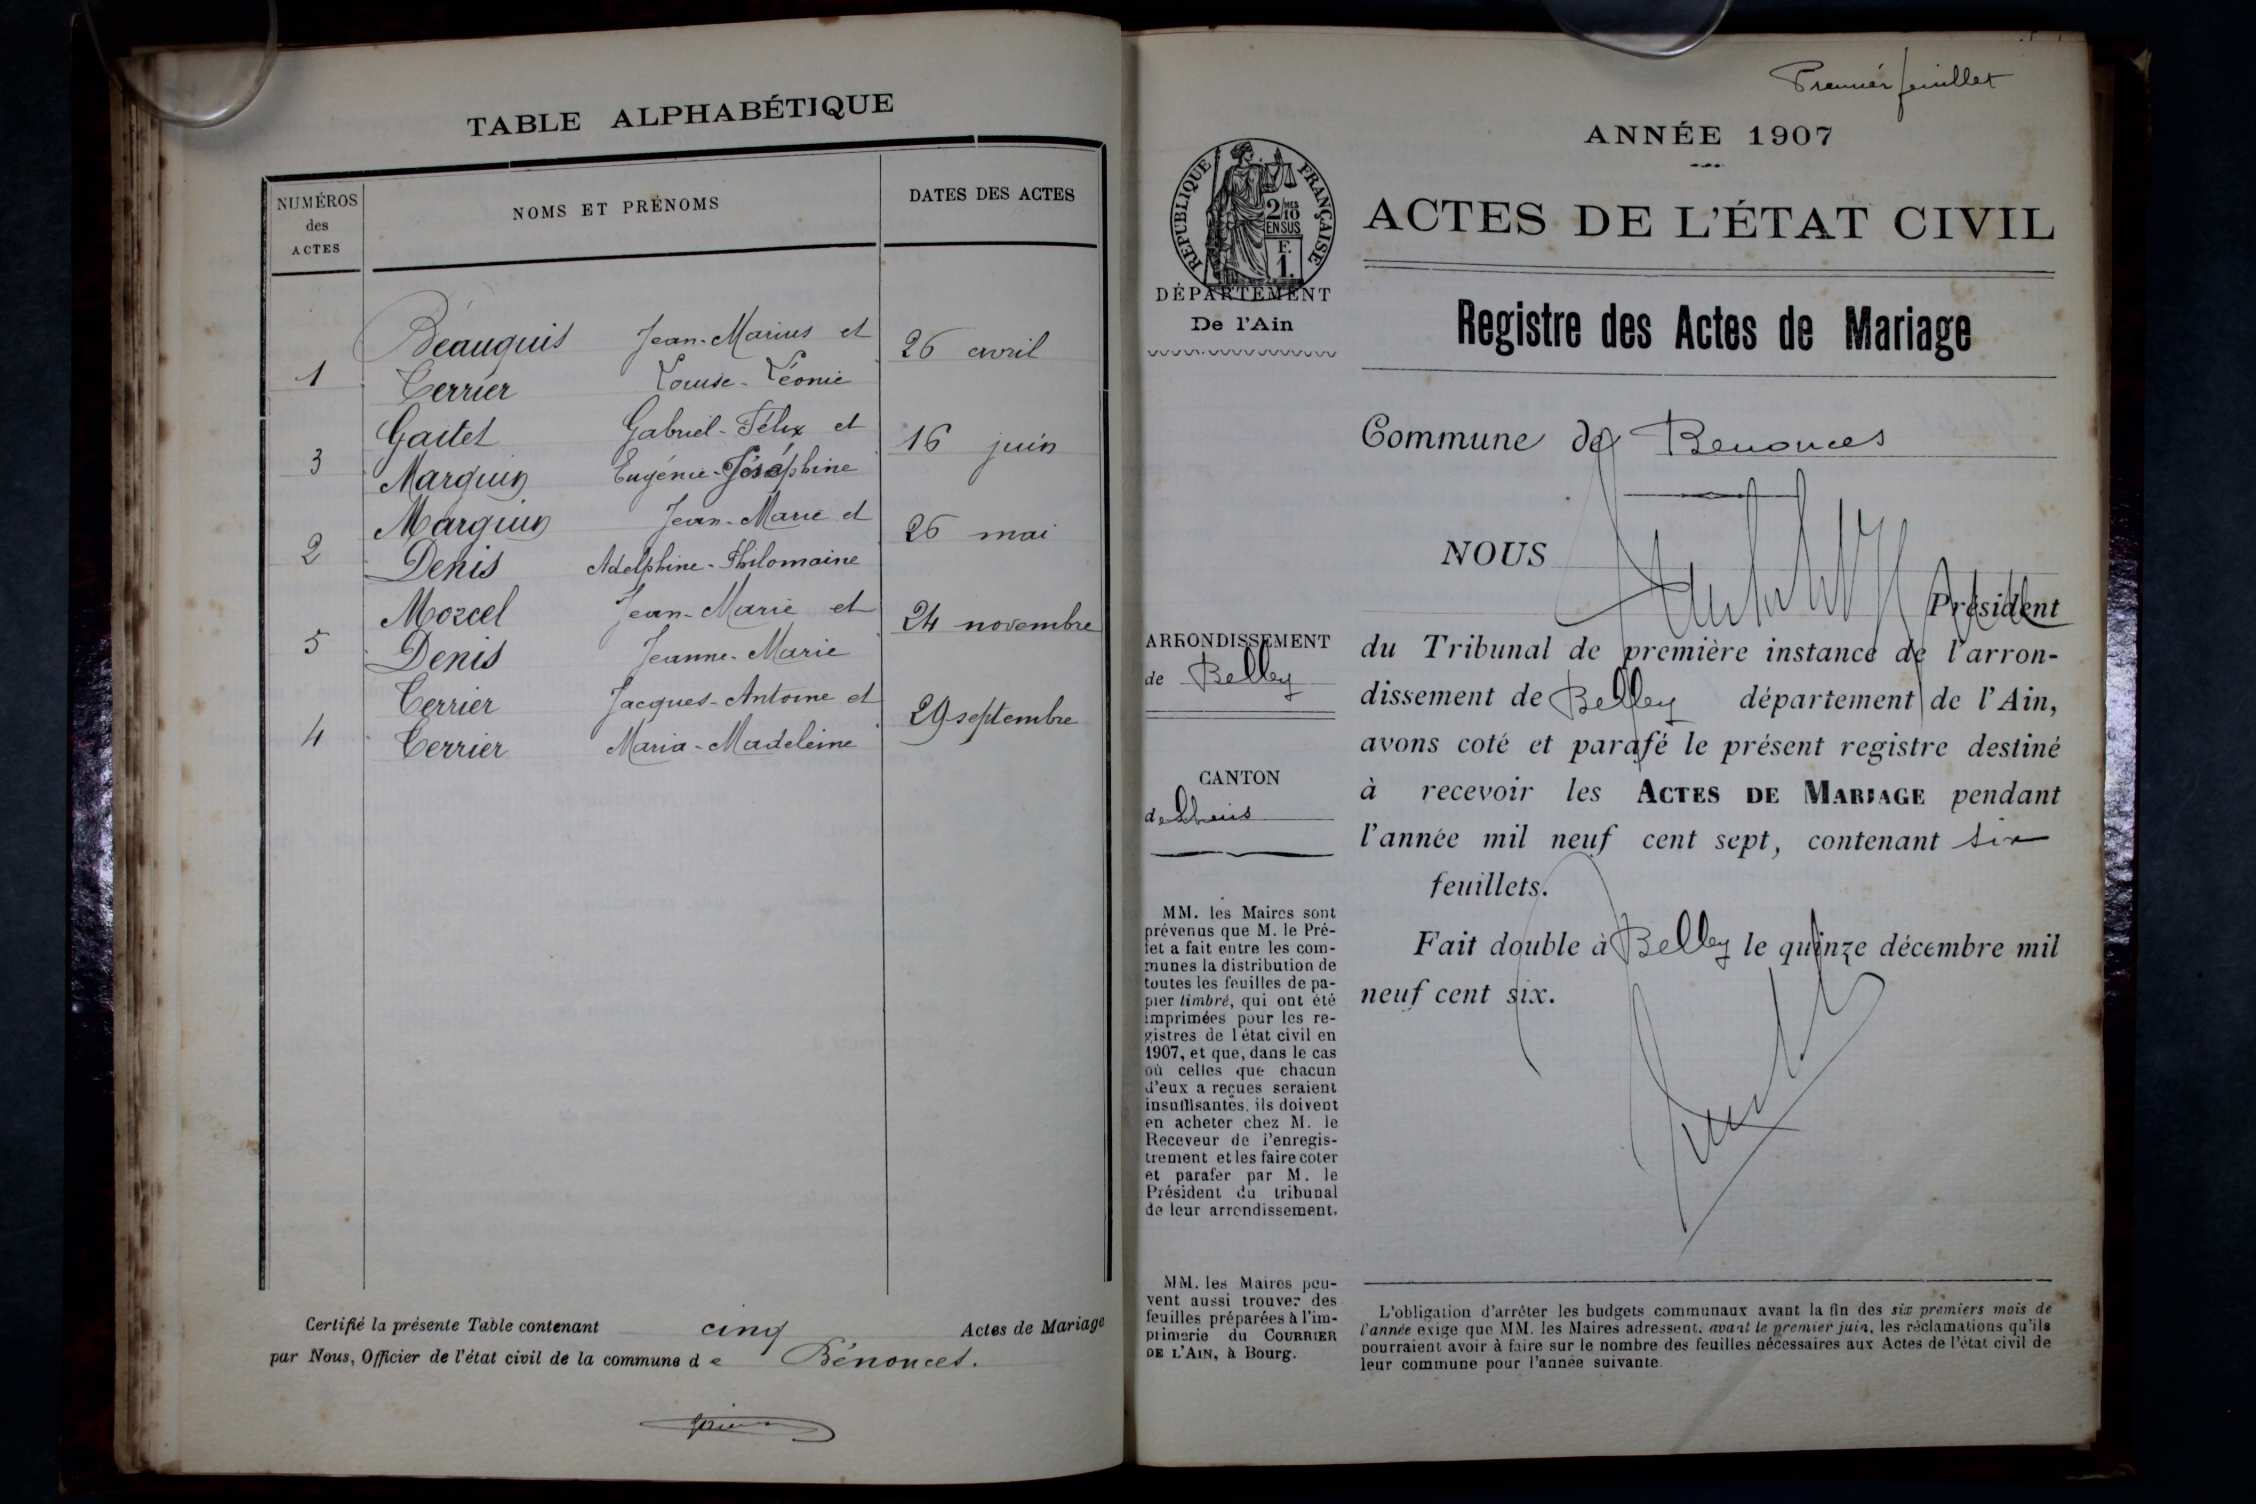 TABLE ALPHABÉTIQUE
NUMÉROS des ACTES
NOMS ET PRÉNOMS
DATES DES ACTES
Béauquis Jean-Marius et 26 avril
1 Terrier Louise-Léonie
Gaitet Gabriel-Félix et 16 juin
3 Marquin Eugénie-Joséphine
Marguin Jean-Marie et 26 mai
2 Denis Adelphine-Philomaine
Morcel Jean-Marie et 24 novembre
5 Denis Jeanne-Marie
Terrier Jacques-Antoine et 29 septembre
4 Terrier Maria-Madeleine
Certifié la présente Table contenant cinq Actes de Mariage
par Nous, Officier de l'état civil de la commune de Bénonces.
Premier feuillet
ANNÉE 1907
ACTES DE L'ÉTAT CIVIL
Registre des Actes de Mariage
RÉPUBLIQUE FRANÇAISE
2/10 MES
EN SUS
F.
1.
DÉPARTEMENT
De l'Ain
Commune de Benonces
NOUS
Président
ARRONDISSEMENT
de Belley
du Tribunal de première instance de l'arron-
dissement de Belley département de l'Ain,
avons coté et parafé le présent registre destiné
à recevoir les ACTES DE MARIAGE pendant
l'année mil neuf cent sept, contenant six
feuillets.
Fait double à Belley le quinze décembre mil
neuf cent six.
CANTON
de Lhuis
MM. les Maires sont
prévenus que M. le Pré-
fet a fait entre les com-
munes la distribution de
toutes les feuilles de pa-
pier timbré, qui ont été
imprimées pour les re-
gistres de l'état civil en
1907, et que, dans le cas
où celles que chacun
d'eux a reçues seraient
insuffisantes, ils doivent
en acheter chez M. le
Receveur de l'enregis-
trement et les faire coter
et parafer par M. le
Président du tribunal
de leur arrondissement.
MM. les Maires peu-
vent aussi trouver des
feuilles préparées à l'im-
primerie du COURRIER
DE L'AIN, à Bourg.
L'obligation d'arrêter les budgets communaux avant la fin des six premiers mois de
l'année exige que MM. les Maires adressent, avant le premier juin, les réclamations qu'ils
pourraient avoir à faire sur le nombre des feuilles nécessaires aux Actes de l'état civil de
leur commune pour l'année suivante.